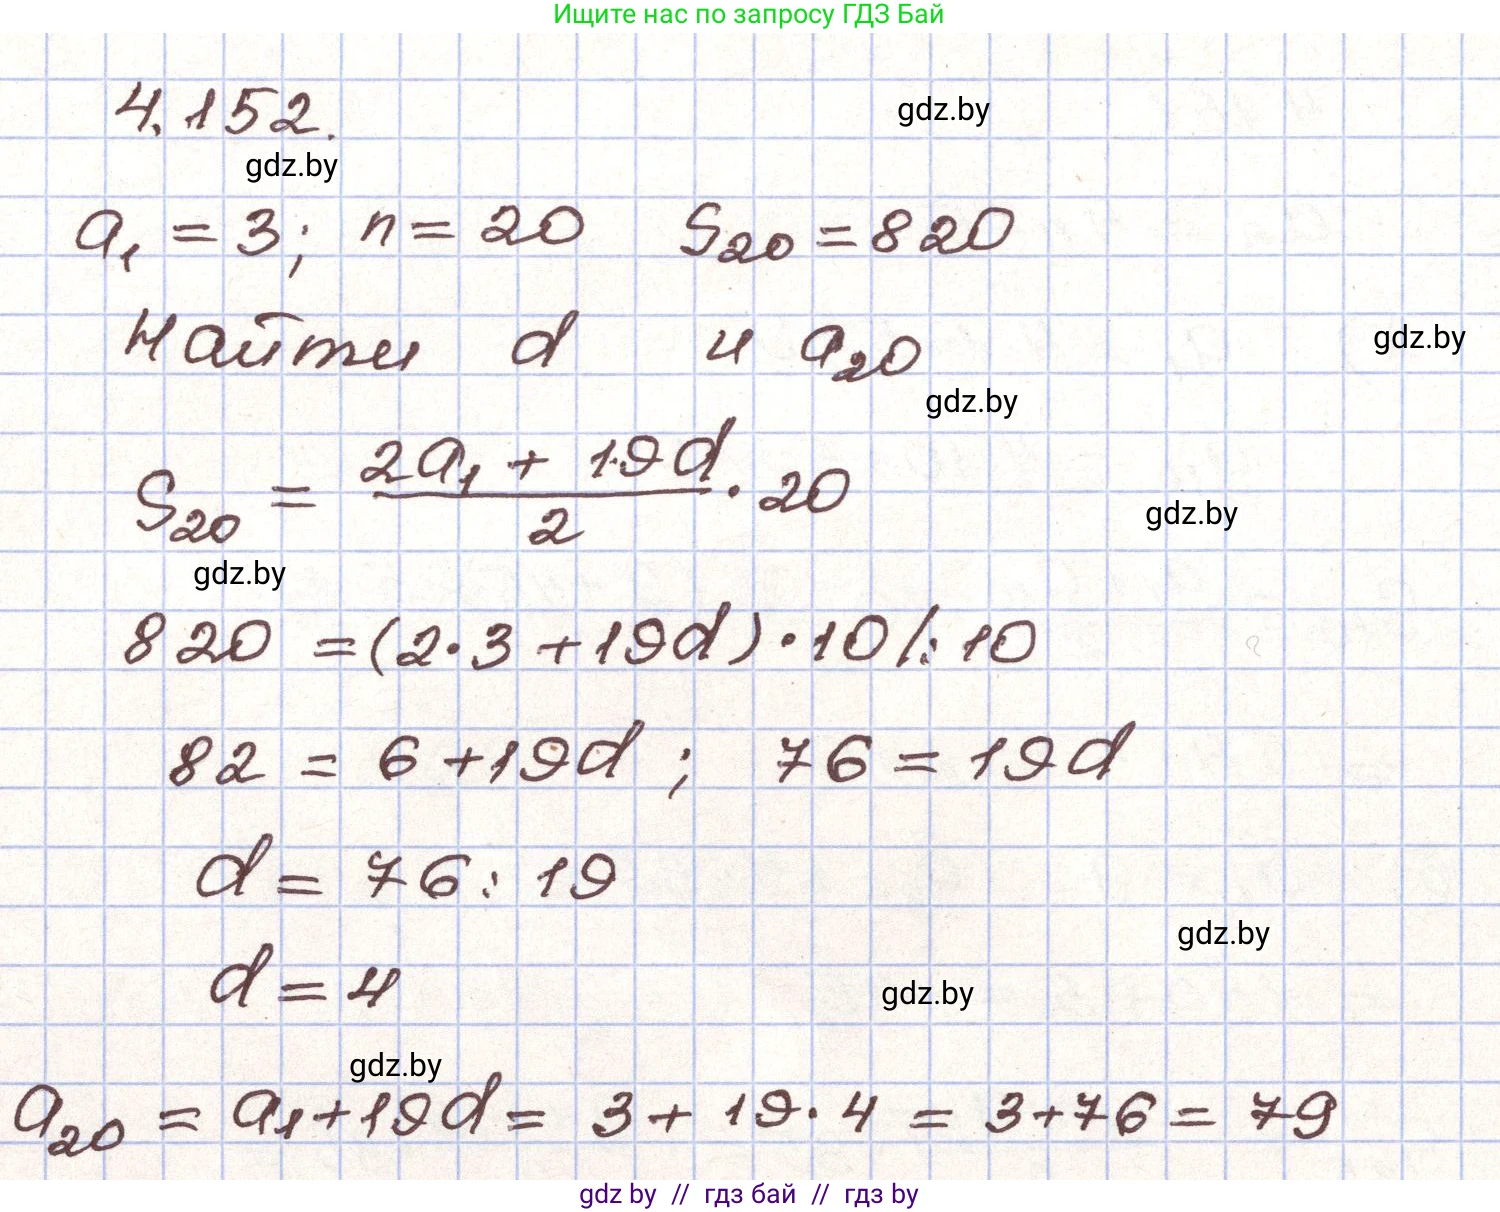 Ищите нас по запросу ГДЗ Бай
4.152.
gdz.by
gdz.by
a₁ = 3; n = 20 S₂₀ = 820
Найти d и a₂₀
gdz.by
gdz.by
S₂₀ = (2a₁ + 19d)/2 · 20
gdz.by
gdz.by
820 = (2·3 + 19d)·10 /:10
82 = 6 + 19d ; 76 = 19d
d = 76 : 19
gdz.by
d = 4
gdz.by
gdz.by
a₂₀ = a₁ + 19d = 3 + 19·4 = 3 + 76 = 79
gdz by // гдз бай // гдз by